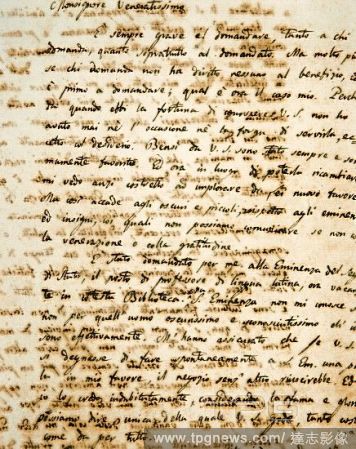 Monsignore Veneratissimo
È sempre grave el domandare, tanto a chi
domanda, quanto sopratutto al domandato. Ma molto più
se chi domanda non ha diritto nessuno al benefizio, e
è primo a domandare; qual è ora il caso mio. Perchè
da quando ebbi la fortuna di conoscere V.S. non ho
avuto mai nè l'occasione nè la forza di servirla
effetto al desiderio. Bensì da V.S. sono stato sempre e
mamente favorito. Ed ora in luogo di poterla ricambiare
mi vedo anzi costretto ad implorare da lei nuovo favore
Ma così accade agli oscuri e piccoli rispetto agli eminenti
ed insigni, coi quali non possiamo comunicare se non
la venerazione e colla gratitudine.
È stato domandato per me alla Eminenza del
di Stato il posto di professore di lingua latina, ora vacan
te in cotesta Biblioteca. S. Eminenza non mi conosce
non per quell'uomo oscurissimo e sconosciutissimo ch'
sono effettivamente. Mi hanno assicurato che se V.S.
si degnasse di fare spontaneamente a S. Em. una
la in mio favore il negozio senz'altro riuscirebbe. Ed
io lo credo indubitatamente considerando la stima e
possiamo dire unica della quale Ella gode tanto costì
come da per tutto
www.tpgnews.com/ 達志影像